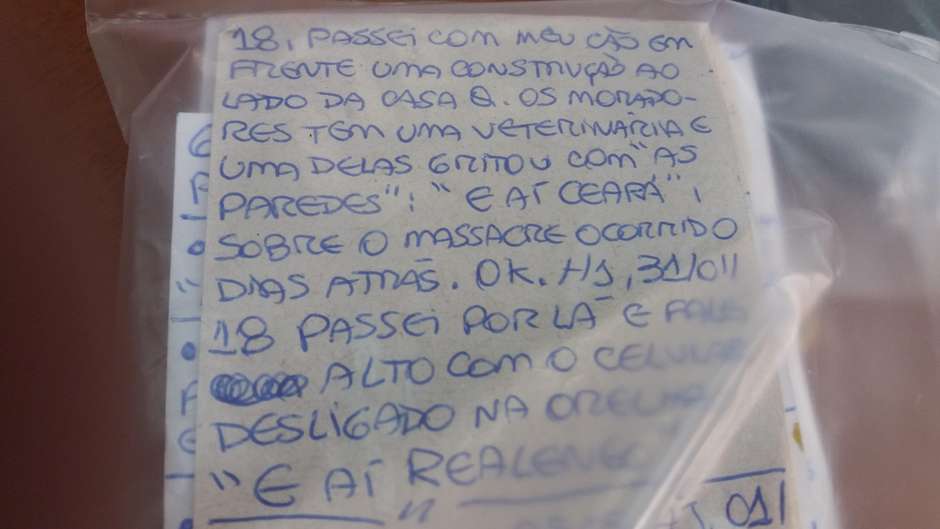 18, PASSEI COM MEU CÃO EM
FRENTE UMA CONSTRUÇÃO AO
LADO DA CASA Q. OS MORADO-
RES TEM UMA VETERINÁRIA E
UMA DELAS GRITOU COM "AS
PAREDES": "E AÍ CEARÁ",
SOBRE O MASSACRE OCORRIDO
DIAS ATRÁS. OK. HJ, 31/01/
18 PASSEI POR LÁ E FALEI
ALTO COM O CELULAR
DESLIGADO NA ORELHA
"E AÍ
01/